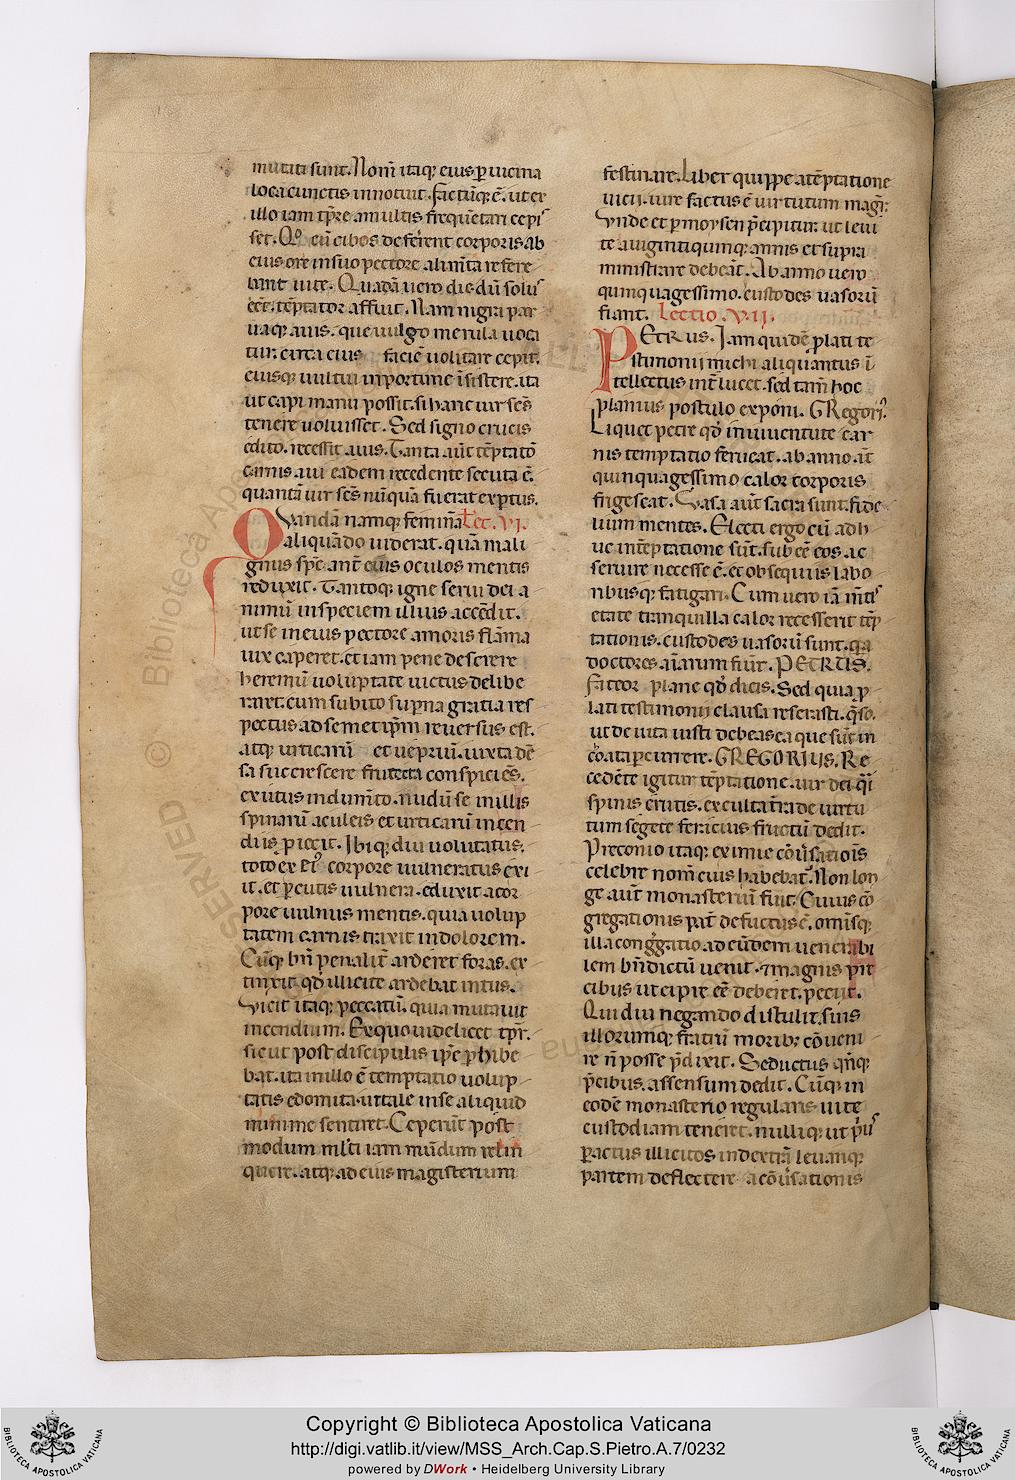 mutati sunt. Nom̄ itaq; eius ꝑ uicina
loca cunctis innotuit. factūq; ē. ut ex
illo iam tp̄re a multis frequētari cepiſ
set. Qͦ cū cibos deferent corporis ab
eius ore in suo pectore alim̄ta refere
bant uite. Quadā uero die dū solꝰ
eēt. tēptator affuit. Nam nigra par
uaq; auis. que uulgo merula uoca
tur. circa eius faciē uolitare cepit.
eiusq; uultui inportune īsistere. ita
ut capi manu posset. si hanc uir scs̄
tenere uoluisset. Sed signo crucis
edito. recessit auis. Tanta aūt tēptatō
carnis. aui eadem recedente secuta ē.
quantā uir scs̄ nūquā fuerat exptus.
Quandā namq; feminā Lec. VI.
aliquādo uiderat. quā mali
gnus sp̄c ant̄ eius oculos mentis
reduxit. Tantoq; igne serui dei a
nimū in speciem illius accēdit.
ut se in eius pectore amoris flāma
uix caperet. et iam pene deserere
heremū uoluptate uictus delibe
raret. cum subito supna gratia res
pectus ad semetip̄m reuersus est.
atq; urticarū et uepriū. iuxta dē
sa succrescere fruteta conspiciēs.
exutus indum̄to. nudū se in illis
spinarū aculeis et urticarū incen
diis ꝓiecit. Ibiq; diu uolutatus.
toto ex eiꝰ corpore uulneratus exi
it. et ꝑ cutis uulnera. eduxit a cor
pore uulnus mentis. quia uolup
tatem carnis traxit in dolorem.
Cūq; bn̄ penalit̄ arderet foras. ex
tinxit qd̄ illicite ardebat intus.
Vicit itaq; peccatū. quia mutauit
incendium. Ex quo uidelicet tp̄r.
sicut post discipulis ip̄e ꝑhibe
bat. ita in illo ē temptatio uolup
tatis edomita. ut tale in se aliquid
minime sentiret. Ceperūt post
modum ml̄ti iam mūdum relin
quere. atq; ad eius magisterium
festinare. Liber quippe a tēptatione
uicii. iure factus ē uirtutum magr̄.
Vnde et ꝑ moysen p̄cipitur. ut leui
te a uiginti quinq; annis et supra
ministrare debeāt. Ab anno uero
quinquagessimo. custodes uasorū
fiant. Lectio. VII.
PETRUS. Iam quidē ꝓlati te
stimonii michi aliquantus ī
tellectus int̄lucet. sed tam̄ hoc
planius postulo exponi. GRegoriꝰ.
Liquet petre qd̄ in iuuentute car
nis temptatio ferueat. ab anno aūt
quinquagessimo calor corporis
frigescat. Vasa aūt sacra sunt. fide
lium mentes. Electi ergo cū adh
uc in tēptatione sūt. subeē eos. ac
seruire necesse ē. et obsequiis labo
ribusq; fatigari. Cum uero iā m̄tiſ
etate tranquilla calor recesserit tēp
tationis. custodes uasorū sunt. qa
doctores aīarum fiūt. PETRUS.
Fateor plane qd̄ dicis. Sed quia ꝓ
lati testimonii clausa reserasti. qs̄o.
ut de uita iusti debeas ea que sūt in
choata ꝑcurrere. GREGORIUS. Re
cedēte igitur tēptatione. uir dei qͣsi
spinis erutis. exculta t̄ra de uirtu
tum segete feracius fructū dedit.
Preconio itaq; eximie cōuersatiōis
celebre nom̄ eius habebat. Non lon
ge aūt monasteriū fuit. Cuius cō
gregationis pat̄ defuctus ē. omīsq;
illa congregatio. ad eūdem uenerabi
lem bn̄dictū uenit. ⁊ magnis pre
cibus ut ei p̄ee eē deberet. peciit.
Qui diu negando distulit. suis
illorumq; fratrū moribꝫ cōueni
re n̄ posse p̄dixit. Seductus qn̄q;
p̄cibus. assensum dedit. Cūq; in
eodē monasterio regularis uite
custodiam teneret. nulliq; ut p̄uſ
ꝑ actus illicitos in dextrā leuamq;
partem deflectere a cōuersationis
Copyright © Biblioteca Apostolica Vaticana
http://digi.vatlib.it/view/MSS_Arch.Cap.S.Pietro.A.7/0232
powered by DWork • Heidelberg University Library
BIBLIOTECA APOSTOLICA VATICANA
BIBLIOTECA APOSTOLICA VATICANA